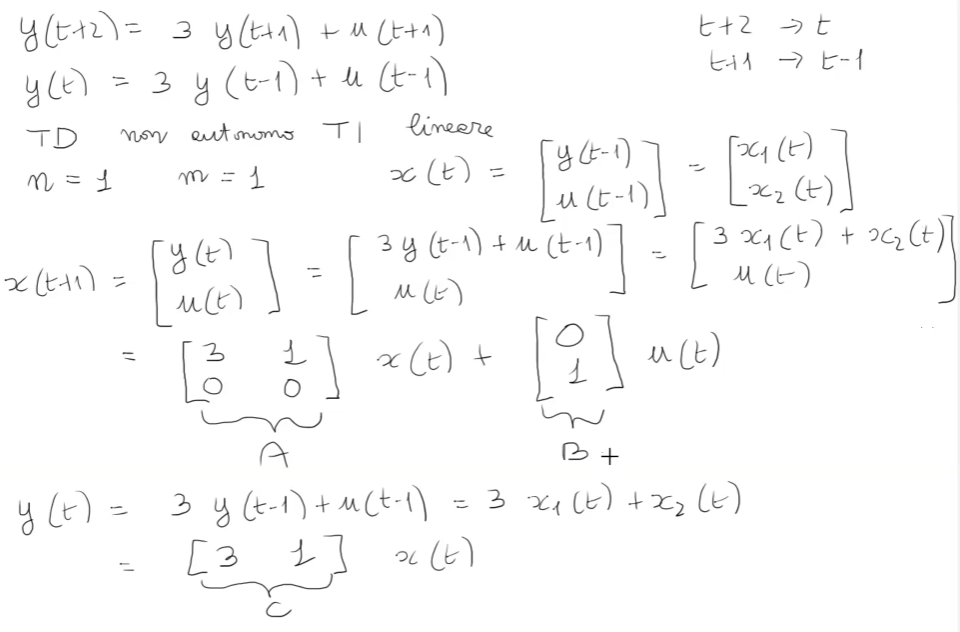 y(t+2) = 3 y(t+1) + u(t+1)
t+2 → t
t+1 → t-1
y(t) = 3 y(t-1) + u(t-1)
TD non autonomo TI lineare
n = 1 m = 1 x(t) = [y(t-1) u(t-1)] = [x₁(t) x₂(t)]
x(t+1) = [y(t) u(t)] = [3 y(t-1) + u(t-1) u(t)] = [3 x₁(t) + x₂(t) u(t)]
= [3 1 0 0] x(t) + [0 1] u(t)
A B +
y(t) = 3 y(t-1) + u(t-1) = 3 x₁(t) + x₂(t)
= [3 1] x(t)
C